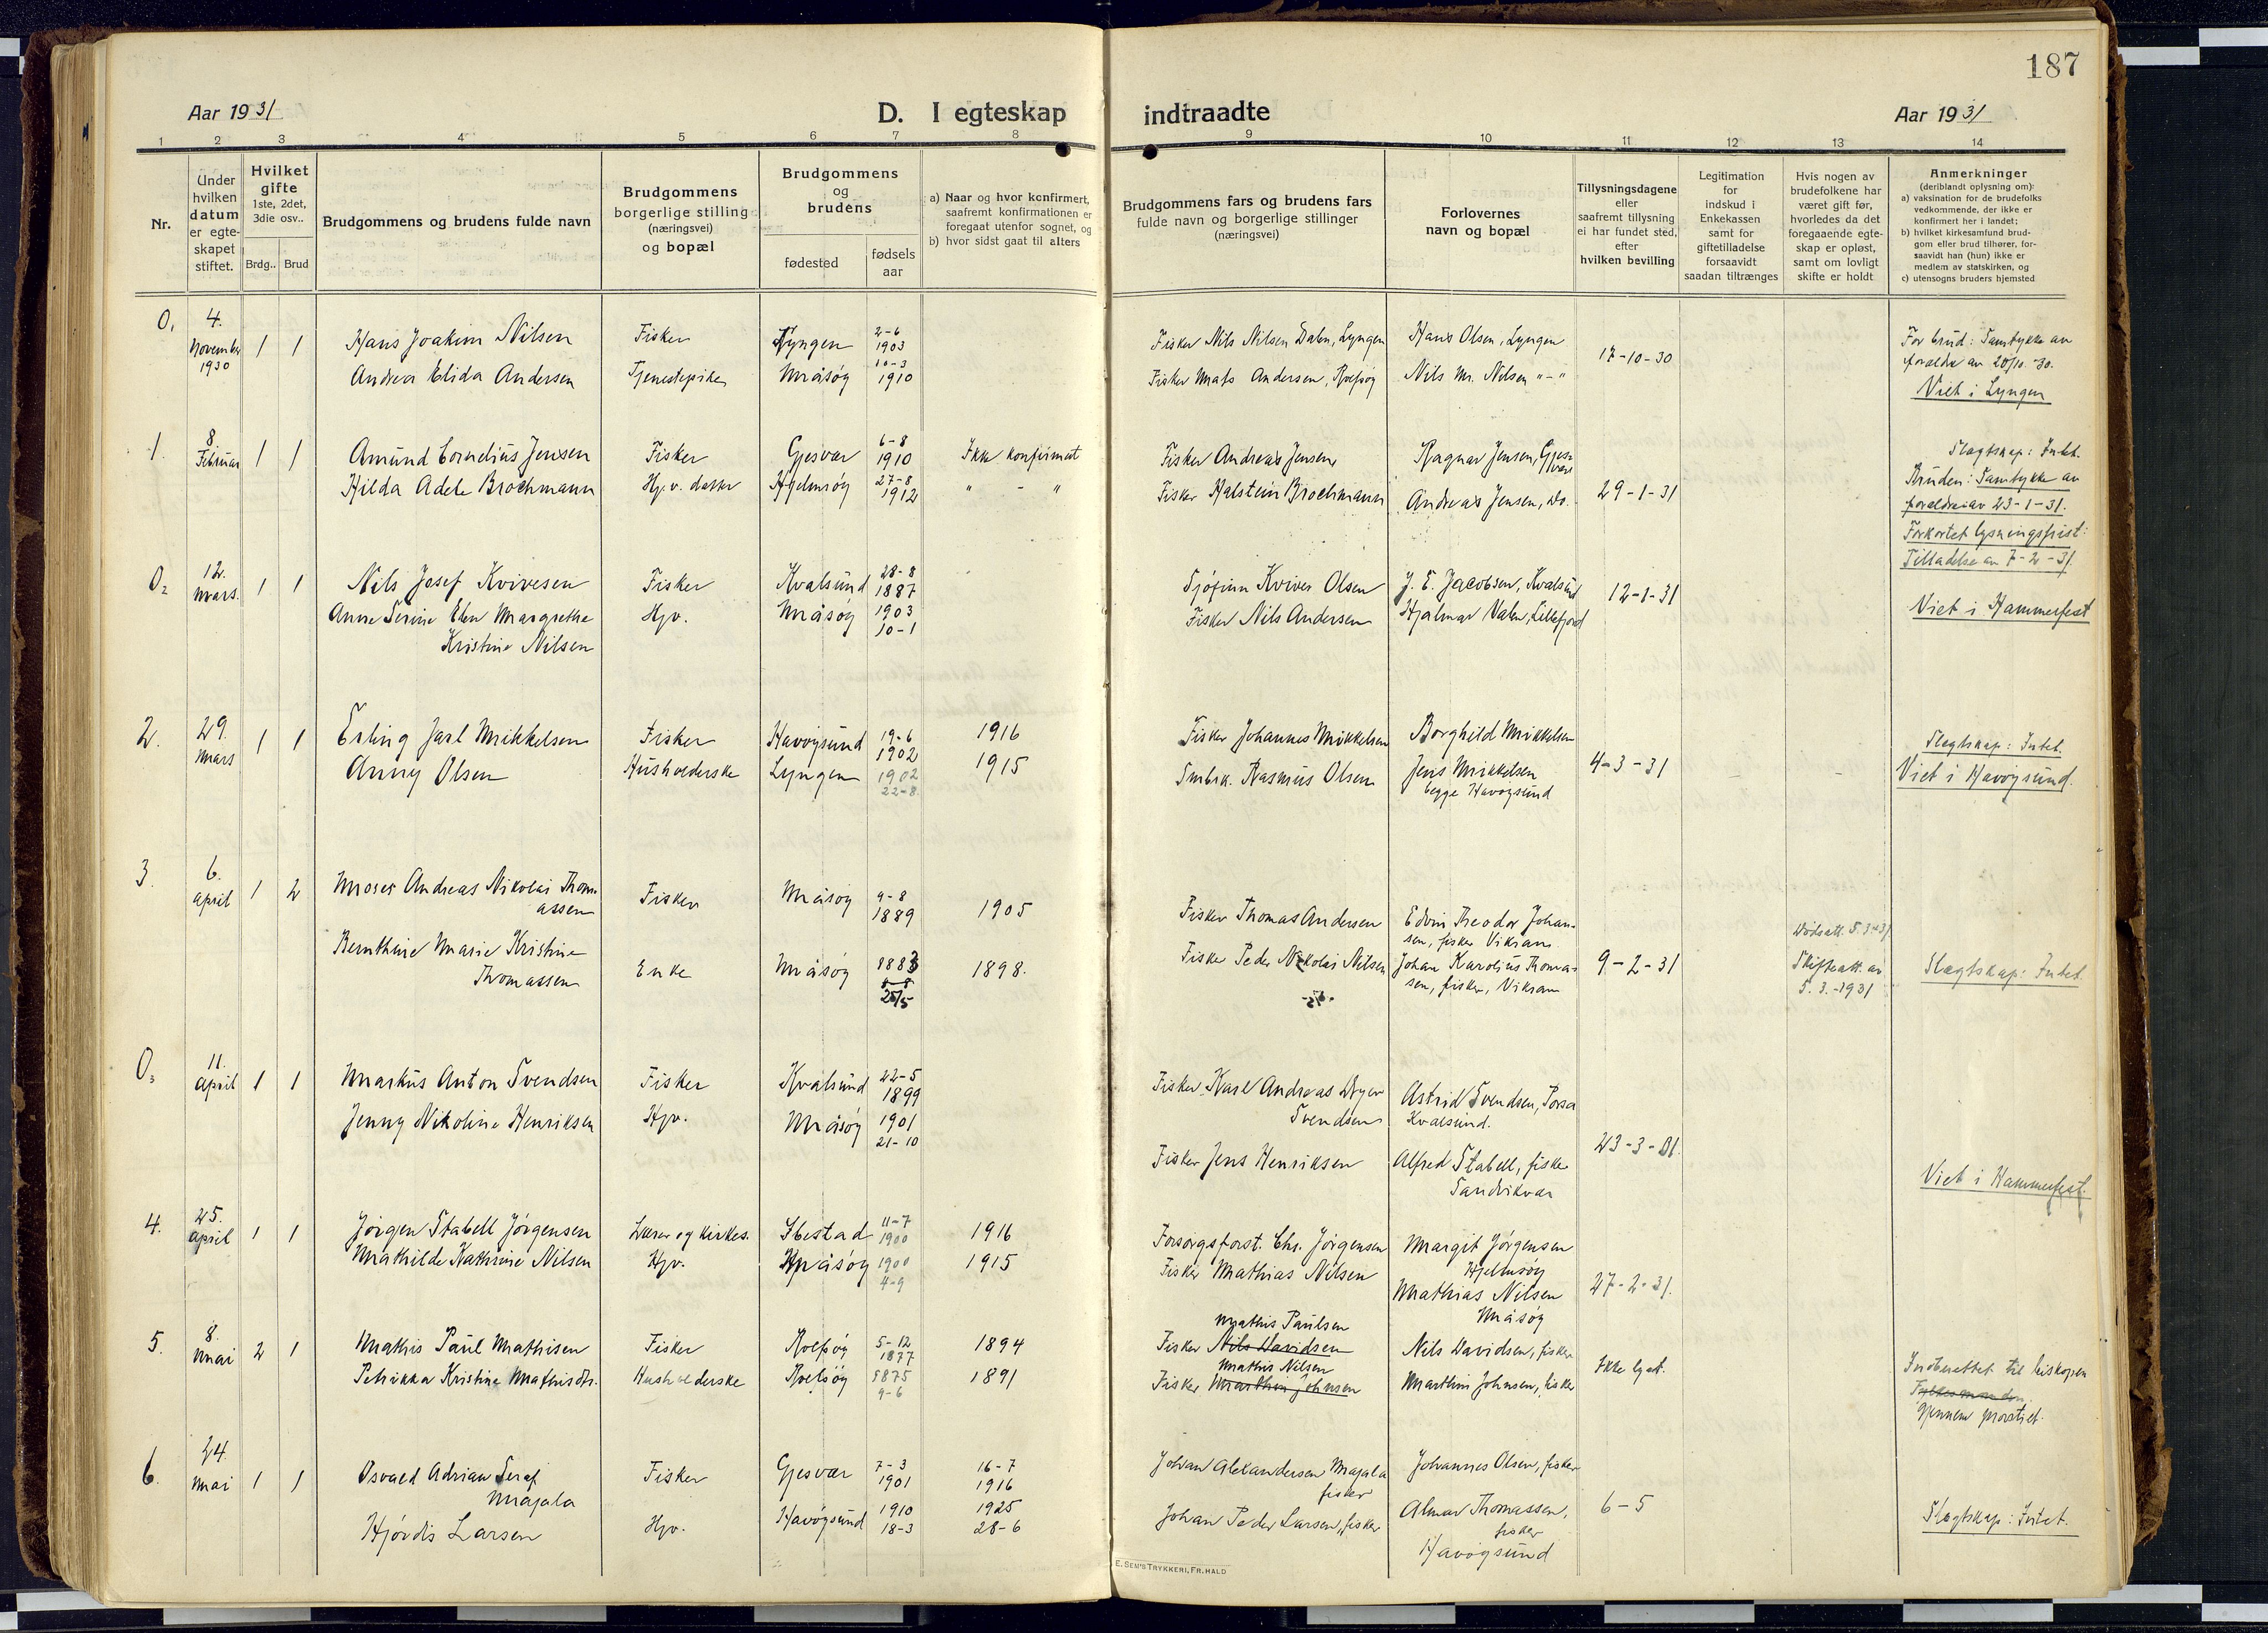 187
Aar 1931
D. I egteskap
indtraadte
Aar 1931
1 2 3 4 5 6 7 8 9 10 11 12 13 14
Nr.
Under hvilken datum er egte-skapet stiftet.
Hvilket gifte 1ste, 2det, 3die osv..
Brdg.. Brud
Brudgommens og brudens fulde navn
Brudgommens borgerlige stilling (næringsvei) og bopæl
Brudgommens og brudens
fødested
fødsels aar
a) Naar og hvor konfirmert, saafremt konfirmationen er foregaat utenfor sognet, og
b) hvor sidst gaat til alters
Brudgommens fars og brudens fars fulde navn og borgerlige stillinger (næringsvei)
Forlovernes navn og bopæl
Tillysningsdagene eller saafremt tillysning ei har fundet sted, efter hvilken bevilling
Legitimation for indskud i Enkekassen samt for giftetilladelse forsaavidt saadan tiltrænges
Hvis nogen av brudefolkene har været gift før, hvorledes da det foregaaende egte-skap er opløst, samt om lovligt skifte er holdt
Anmerkninger
(deriblandt oplysning om):
a) vaksination for de brudefolks vedkommende, der ikke er konfirmert her i landet;
b) hvilket kirkesamfund brud-gom eller brud tilhører, for-saavidt han (hun) ikke er medlem av statskirken, og
c) utensogns bruders hjemsted
0, 4. November 1930 1 1
Hans Joakim Nilsen Fisker Lyngen 2-6 1903
Andrea Elida Andersen Tjenestepike Måsøy 10-3 1910
Fisker Nils Nilsen Dalen, Lyngen Hans Olsen, Lyngen
Fisker Mats Andersen, Rolfsøy Nils M. Nilsen "-"
17-10-30
For brud: Samtykke av
foreldre av 20/10-30.
Viet i Lyngen
1. 8. Februar 1 1
Amund Cornelius Jensen Fisker Gjesvær 6-8 1910 Ikke konfirmert
Hilda Adele Brochmann Hj.v. datter Hjelmsøy 27-8 1912 " - "
Fisker Andreas Jensen, Ragnar Jensen, Gjesvær
Fisker Halstein Brochmann Andreas Jensen, do.
29-1-31
Slægtskap: Intet.
Bruden: Samtykke av
foreldre av 23-1-31.
Forkortet lysningsfrist:
Tilladelse av 7-2-31.
0₂ 12. Mars. 1 1
Nils Josef Kvivesen Fisker Kvalsund 28-8 1887
Anne Serine Elen Margrethe
Kristine Nilsen Hjv. Måsøy 1903 10-1
Sjøfinn Kviver Olsen J. E. Jacobsen, Kvalsund
Fisker Nils Andersen Hjalmar Valen, Lillefjord
12-1-31
Viet i Hammerfest
2. 29. Mars 1 1
Erling Jarl Mikkelsen Fisker Havøysund 19-6 1902 1916
Anny Olsen Husholderske Lyngen 1902 22-8. 1915
Fisker Johannes Mikkelsen Borghild Mikkelsen
Småbrk. Rasmus Olsen Jens Mikkelsen
begge Havøysund
4-3-31 - -
Slægtskap: Intet.
Viet i Havøysund.
3. 6. April 1 2
Moses Andreas Nikolai Thom-
assen Fisker Måsøy 9-8 1889 1905
Bernthine Marie Kristine
Thomassen Enke Måsøy 1883 25/5 1898.
Fisker Thomas Andersen Edvin Theodor Johan-
sen, fisker Vikran
Fisker Peder Nikolai Nilsen Johan Karolius Thomas-
sen, fisker, Vikran
9-2-31
Dødsatt. 5.3-31
Skifteatt. av
5.3.-1931
Slægtskap: Intet.
0₃ 11. April 1 1
Markus Anton Svendsen Fisker Kvalsund 22-5 1899
Jenny Nikoline Henriksen Hjv. Måsøy 1901 21-10
Fisker Karl Andreas Dyer
Svendsen Astrid Svendsen, Porsa
Kvalsund.
Fisker Jens Henriksen Alfred Stabell, fisker
Sandvikvær
23-3-31.
Viet i Hammerfest.
4. 25. April 1 1
Jørgen Stabell Jørgensen Lærer og kirkes. Ibestad 11-7 1900 1916
Mathilde Kathrine Nilsen Hjv. Måsøy 1900 4-9 1915
Forsorgsforst. Chr. Jørgensen Margit Jørgensen
Hjelmsøy
Fisker Mathias Nilsen Mathias Nilsen
Måsøy
27-2-31.
5. 8. Mai 2 1
Mathis Paul Mathisen Fisker Rolfsøy 5-12 1877 1894
Petrikka Kristine Mathisdtr. Husholderske Rolfsøy 1875 9-6 1891
Mathis Paulsen
Fisker Nils Davidsen Nils Davidsen, fisker
Mathis Nilsen
Fisker Marthin Johnsen Marthin Johnsen, fisker
Ikke lyst.
Indberettet til biskopen
Fylkesmanden
gjennem prostiet.
6. 24. Mai 1 1
Osvald Adrian Seraf
Majala Fisker Gjesvær 7-3 1901 16-7 1916
Hjørdis Larsen Hjv. Havøysund 1910 18-3 1925 28-6
Johan Alexandersen Majala
fisker Johannes Olsen, fisker
Johan Peder Larsen, fisker Almar Thomassen,
fisker
Havøysund
6-5
Slægtskap: Intet.
E. SEM'S TRYKKERI, FR.HALD